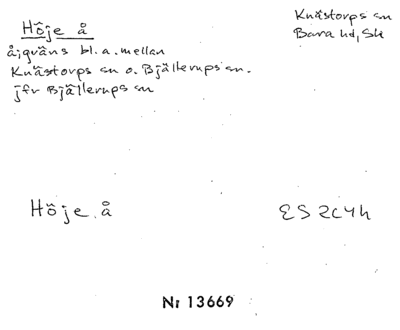 Höje å
å, gräns bl.a. mellan
Knästorps sn o. Bjällerups sn.
jfr Bjällerups sn
Knästorps sn
Bara hd, Sk
Höje å
ES 2C4h
Nr 13669